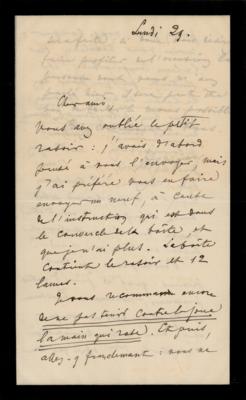 Lundi 29.
Cher ami
Vous avez oublié le petit
rasoir : j'avais d'abord
pensé à vous l'envoyer, mais
j'ai préféré vous en faire
envoyer un neuf, à cause
de l'instruction qui est dans
le couvercle de la boîte et
que je n'ai plus. La boîte
contient le rasoir et 12
lames.
Je vous recommande encore
de ne pas tenir contre la joue
la main qui rase. Et puis,
allez-y froidement : vous ne